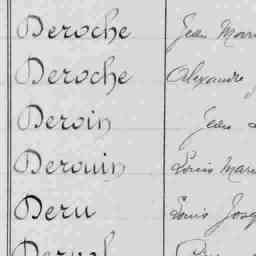 Deroche Jean
Deroche Alexandre
Deroin Jean
Derouin Louis
Deru Louis